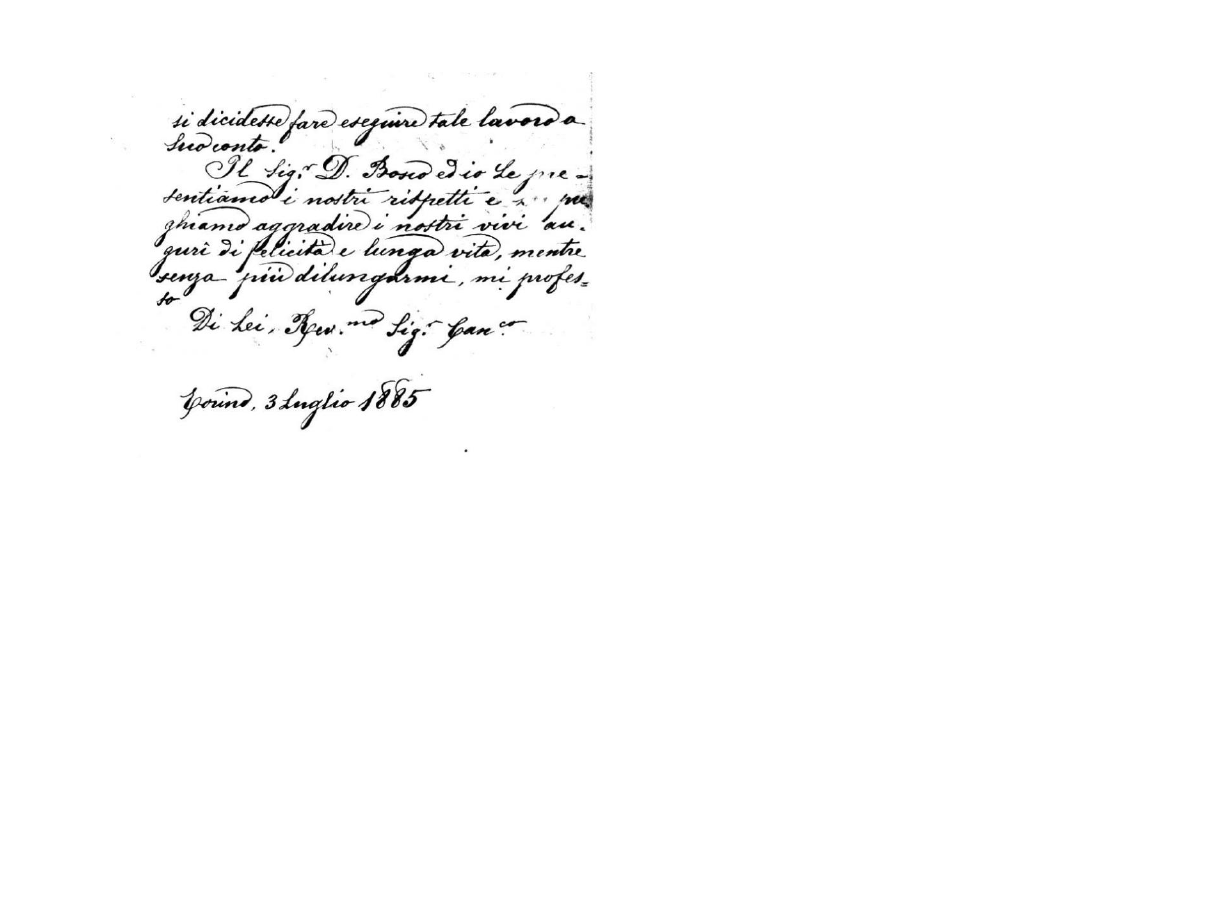 si dicidesse fare eseguire tale lavoro a
suo conto.
Il Sig.r D. Bosco ed io Le pre-
sentiamo i nostri rispetti e pre
ghiamo aggradire i nostri vivi au-
guri di felicità e lunga vita, mentre
senza più dilungarmi, mi profes=
so
Di Lei, Rev.mo Sig.r Can.co
Torino, 3 Luglio 1885